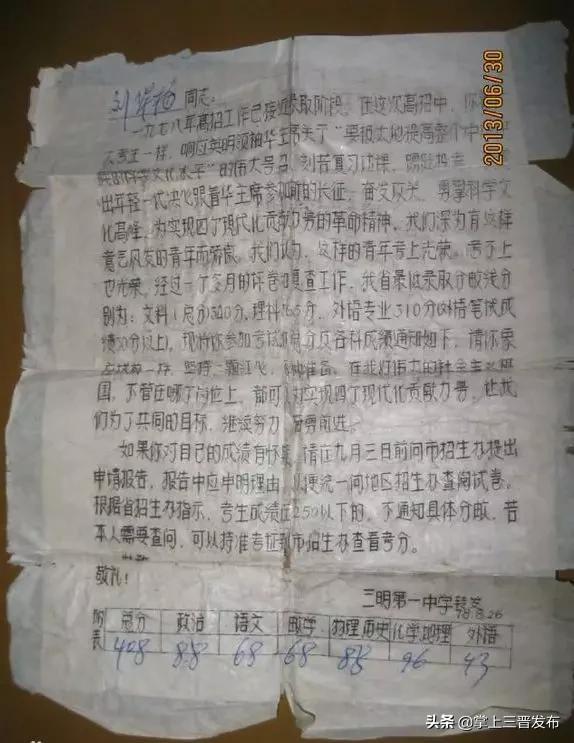 2013/06/30
同志:
一九七八年高招工作已接近录取阶段。在这次高招中,你
考生一样,响应英明领袖华主席关于"要极大地提高整个中
的科学文化水平"的伟大号召,刻苦复习功课,踊跃投考,
出年轻一代决心跟着华主席参加新的长征,奋发攻关,勇攀科学文
化高峰,为实现四个现代化贡献力量的革命精神。我们深为有这样
意气风发的青年而骄傲。我们认为,这样的青年考上光荣,考不上
也光荣。经过一个多月的评卷和复查工作,我省最低录取分数线分
别为:文科(总分)340分,理科365分,外语专业310分(外语笔试成
绩50分以上)。现将你参加考试的总分及各科成绩通知如下,请你象
一样,坚持一颗红心,准备。在我们伟大的社会主义祖
国,不管在哪个岗位上,都可为实现四个现代化贡献力量,让我
们为了共同的目标,继续努力,奋勇前进。
如果你对自己的成绩有怀疑,请在九月三日前向市招生办提出
申请报告。报告中应申明理由,以便统一向地区招生办查阅试卷。
根据省招生办指示,考生成绩在250以下的,不通知具体分数,若
本人需要查问,可以持准考证到市招生办查看考分。
此致
敬礼!
三明第一中学
78.8.26
附表 总分 政治 语文 数学 物理 历史 化学 地理 外语
408 88 68 68 88 96 43
头条 @掌上三晋发布